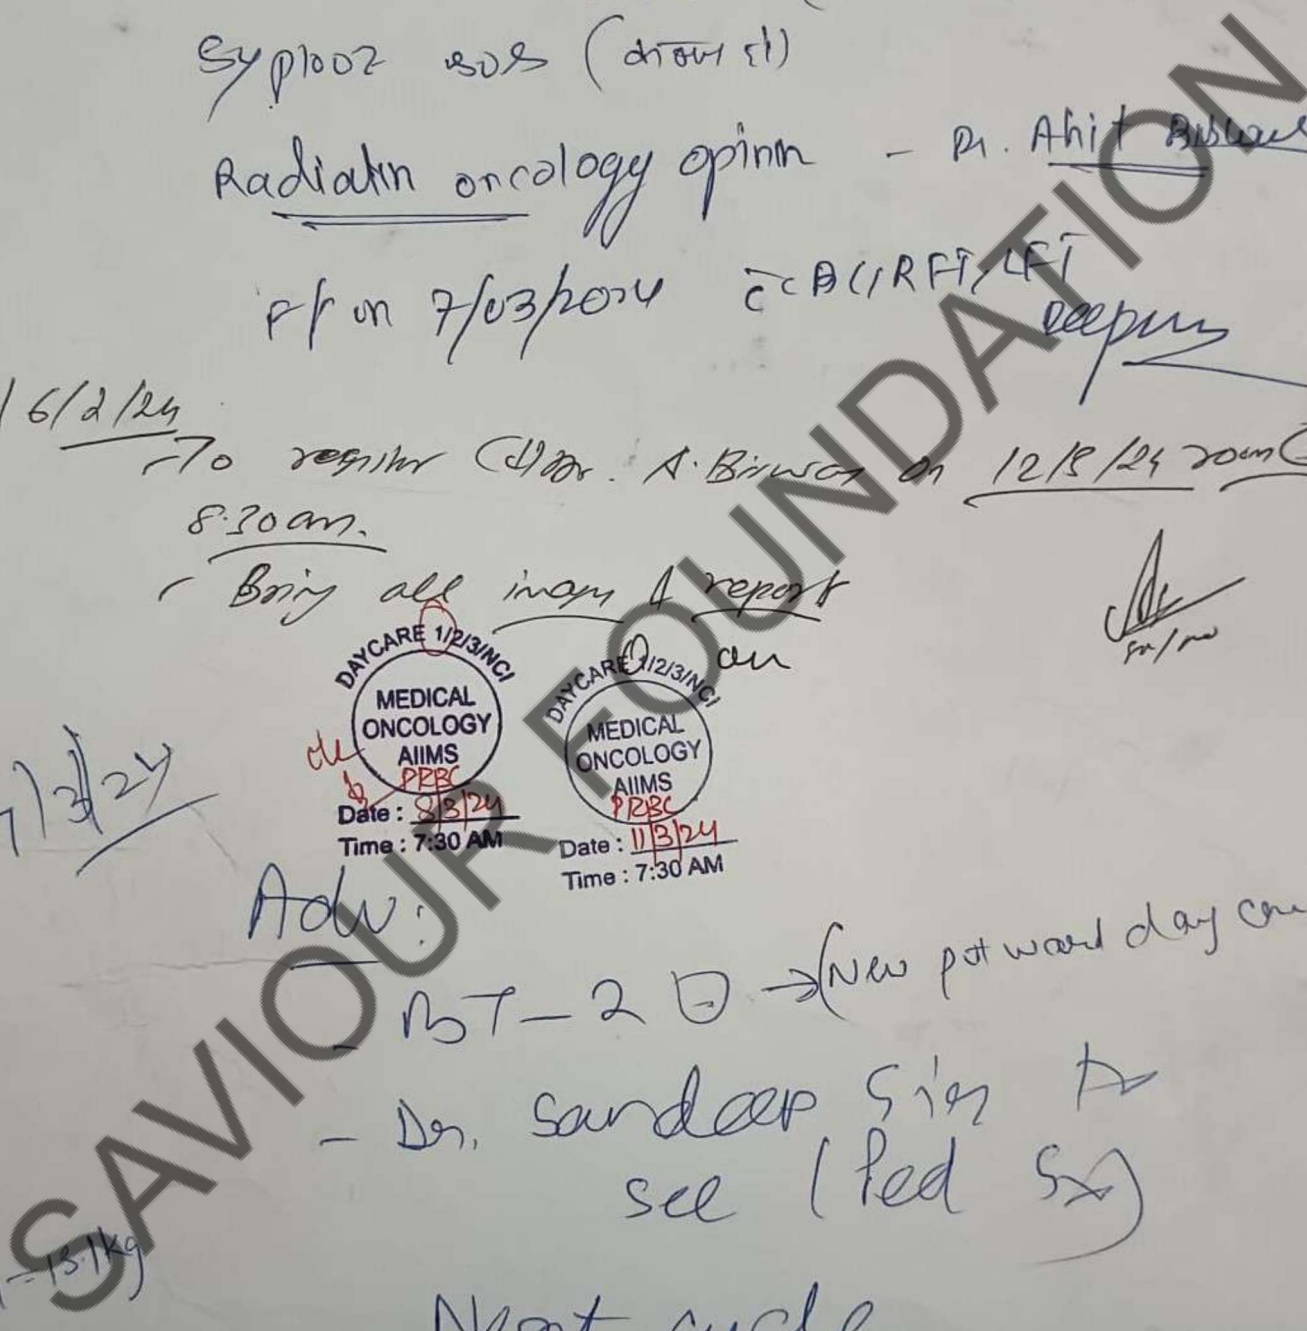 Syp looz sos (कब्ज हो)
Radiatin oncology opinin - Dr. Ahit
F/f on 7/03/2024 c̄ CBC/RFT/LFT
16/2/24
- To register Dr. A. Biswas on 12/3/24 room
8:30 am.
- Bring all imagn & report
DAYCARE 1/2/3/NCI
MEDICAL
ONCOLOGY
AIIMS
PRBC
Date : 8/3/24
Time : 7:30 AM
DAYCARE 1/2/3/NCI
MEDICAL
ONCOLOGY
AIIMS
PRBC
Date : 11/3/24
Time : 7:30 AM
7/3/24
Adv:
- BT - 2 → (New pvt ward day care
- Dr. Sandeep
see (Ped Sx)
- 13.1kg
Next cycle
SAVIOUR FOUNDATION